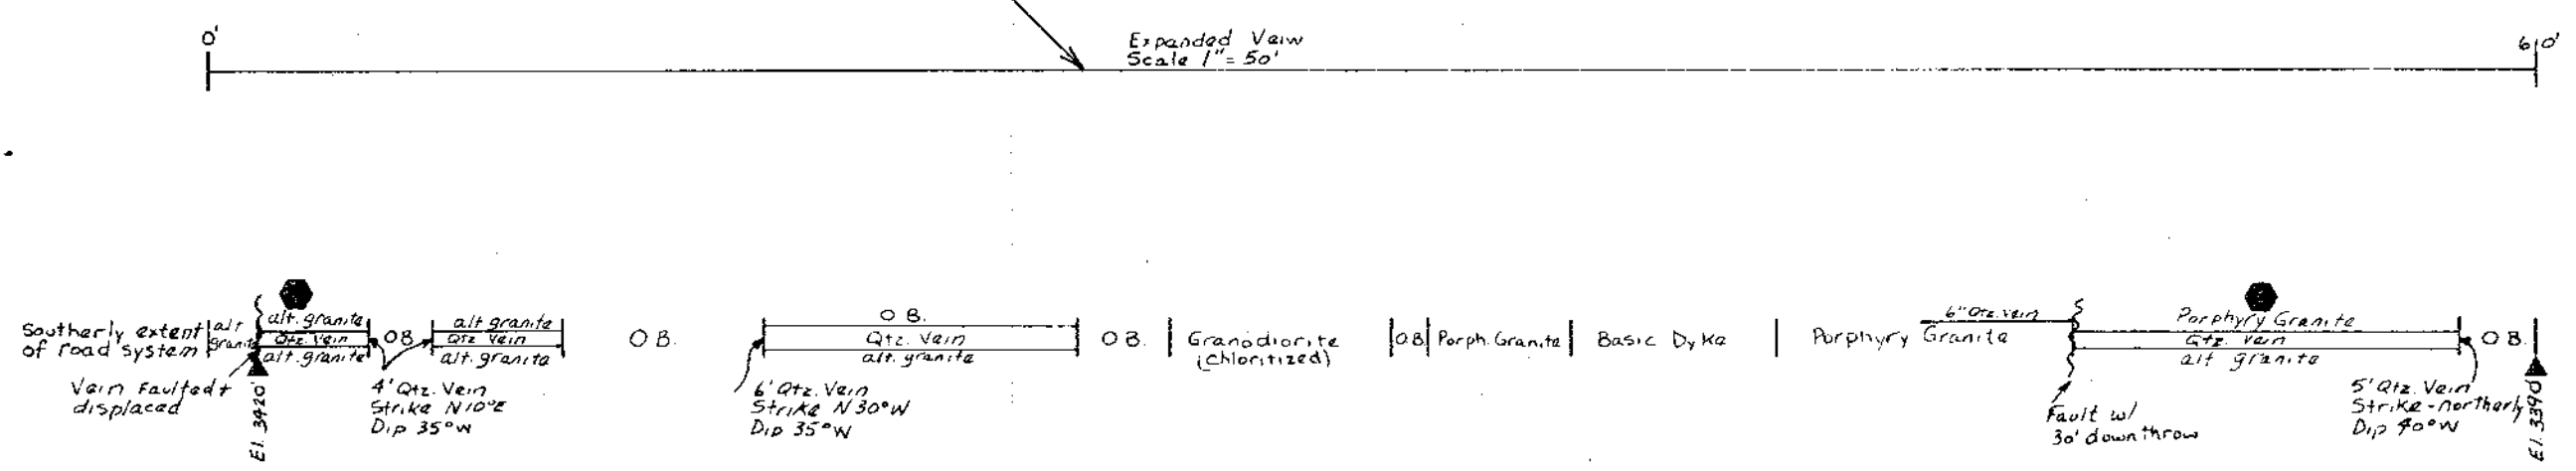 0'
Expanded Veiw
Scale 1" = 50'
610'
Southerly extent
of road system
alt
granite
alt. granite
Qtz Vein
alt. granite
O B.
alt granite
Qtz Vein
alt. granite
O B.
O B.
Qtz. Vein
alt. granite
O B.
Granodiorite
(chloritized)
O.B.
Porph. Granite
Basic Dyke
Porphyry Granite
6" Qtz. Vein
Porphyry Granite
Qtz. Vein
alt granite
O B.
Vein Faulted +
displaced
El. 3420'
4' Qtz. Vein
Strike N10°E
Dip 35°W
6' Qtz. Vein
Strike N30°W
Dip 35°W
Fault w/
30' downthrow
5' Qtz. Vein
Strike - northerly
Dip 40°W
El. 3390'